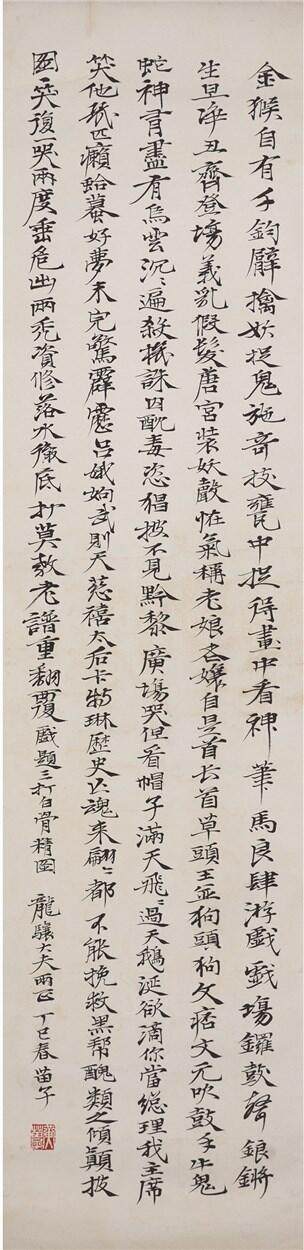 金猴自有千鈞臂擒妖捉鬼施奇技甕中捉得畫中看神筆馬良肆游戲戲場鑼鼓聲鋃鏘
生旦淨丑齊登場義乳假髮唐宮装妖聲怪氣稱老娘老孃自是首长首草頭王並狗頭狗文痞文元吹鼓手牛鬼
蛇神胥盡有烏雲沉沉遍殺機誅囚酖毒恣猖披不見黔黎廣場哭但看帽子滿天飛飛過天鵝涎欲滴你當總理我主席
笑他孤匹癩蛤蟆好夢未完驚霹靂吕娥姁武則天慈禧太后卡特琳歷史亡魂来翩翩都不能挽救黑帮醜類之傾顛披
圖一笑復一哭兩度垂危出兩禿資修落水徹底打莫教老譜重翻覆戲題三打白骨精圖 龍驤大夫兩正 丁巳春苗子